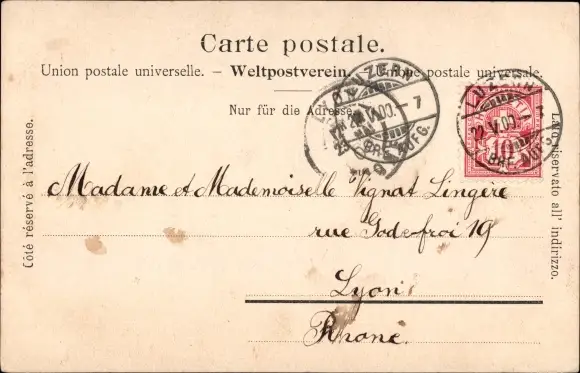 Carte postale.
Union postale universelle. – Weltpostverein. – Unione postale universale.
Nur für die Adresse.
Côté réservé à l'adresse.
Lato riservato all' indirizzo.
LUZERN
22.V.00.–7
BRF. AUFG.
LUZERN
22.V.00.–7
BRF. AUFG.
10
LYON
Madame et Mademoiselle Vignat Lingère
rue Godefroi 19
Lyon
Rhone.